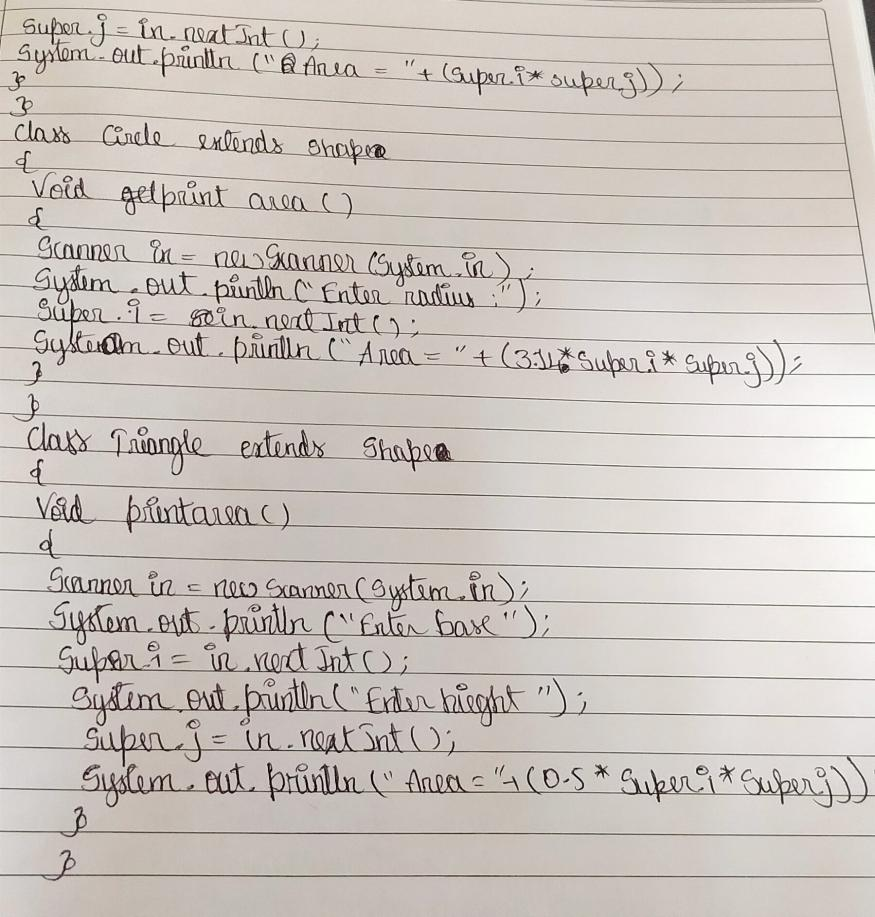 Super.j = in.nextInt();
System.out.println("Area = "+(Super.i*super.j));
}
}
Class Circle extends shape
{
Void getprint area()
{
Scanner in = new Scanner(System.in);
System.out.println("Enter radius:");
Super.i = in.nextInt();
System.out.println("Area = "+(3.14*Super.i*Super.j));
}
}
Class Triangle extends Shape
{
Void printarea()
{
Scanner in = new Scanner(System.in);
System.out.println("Enter base");
Super.i = in.nextInt();
System.out.println("Enter hieght");
Super.j = in.nextInt();
System.out.println("Area="+(0.5*Super.i*Super.j))
}
}